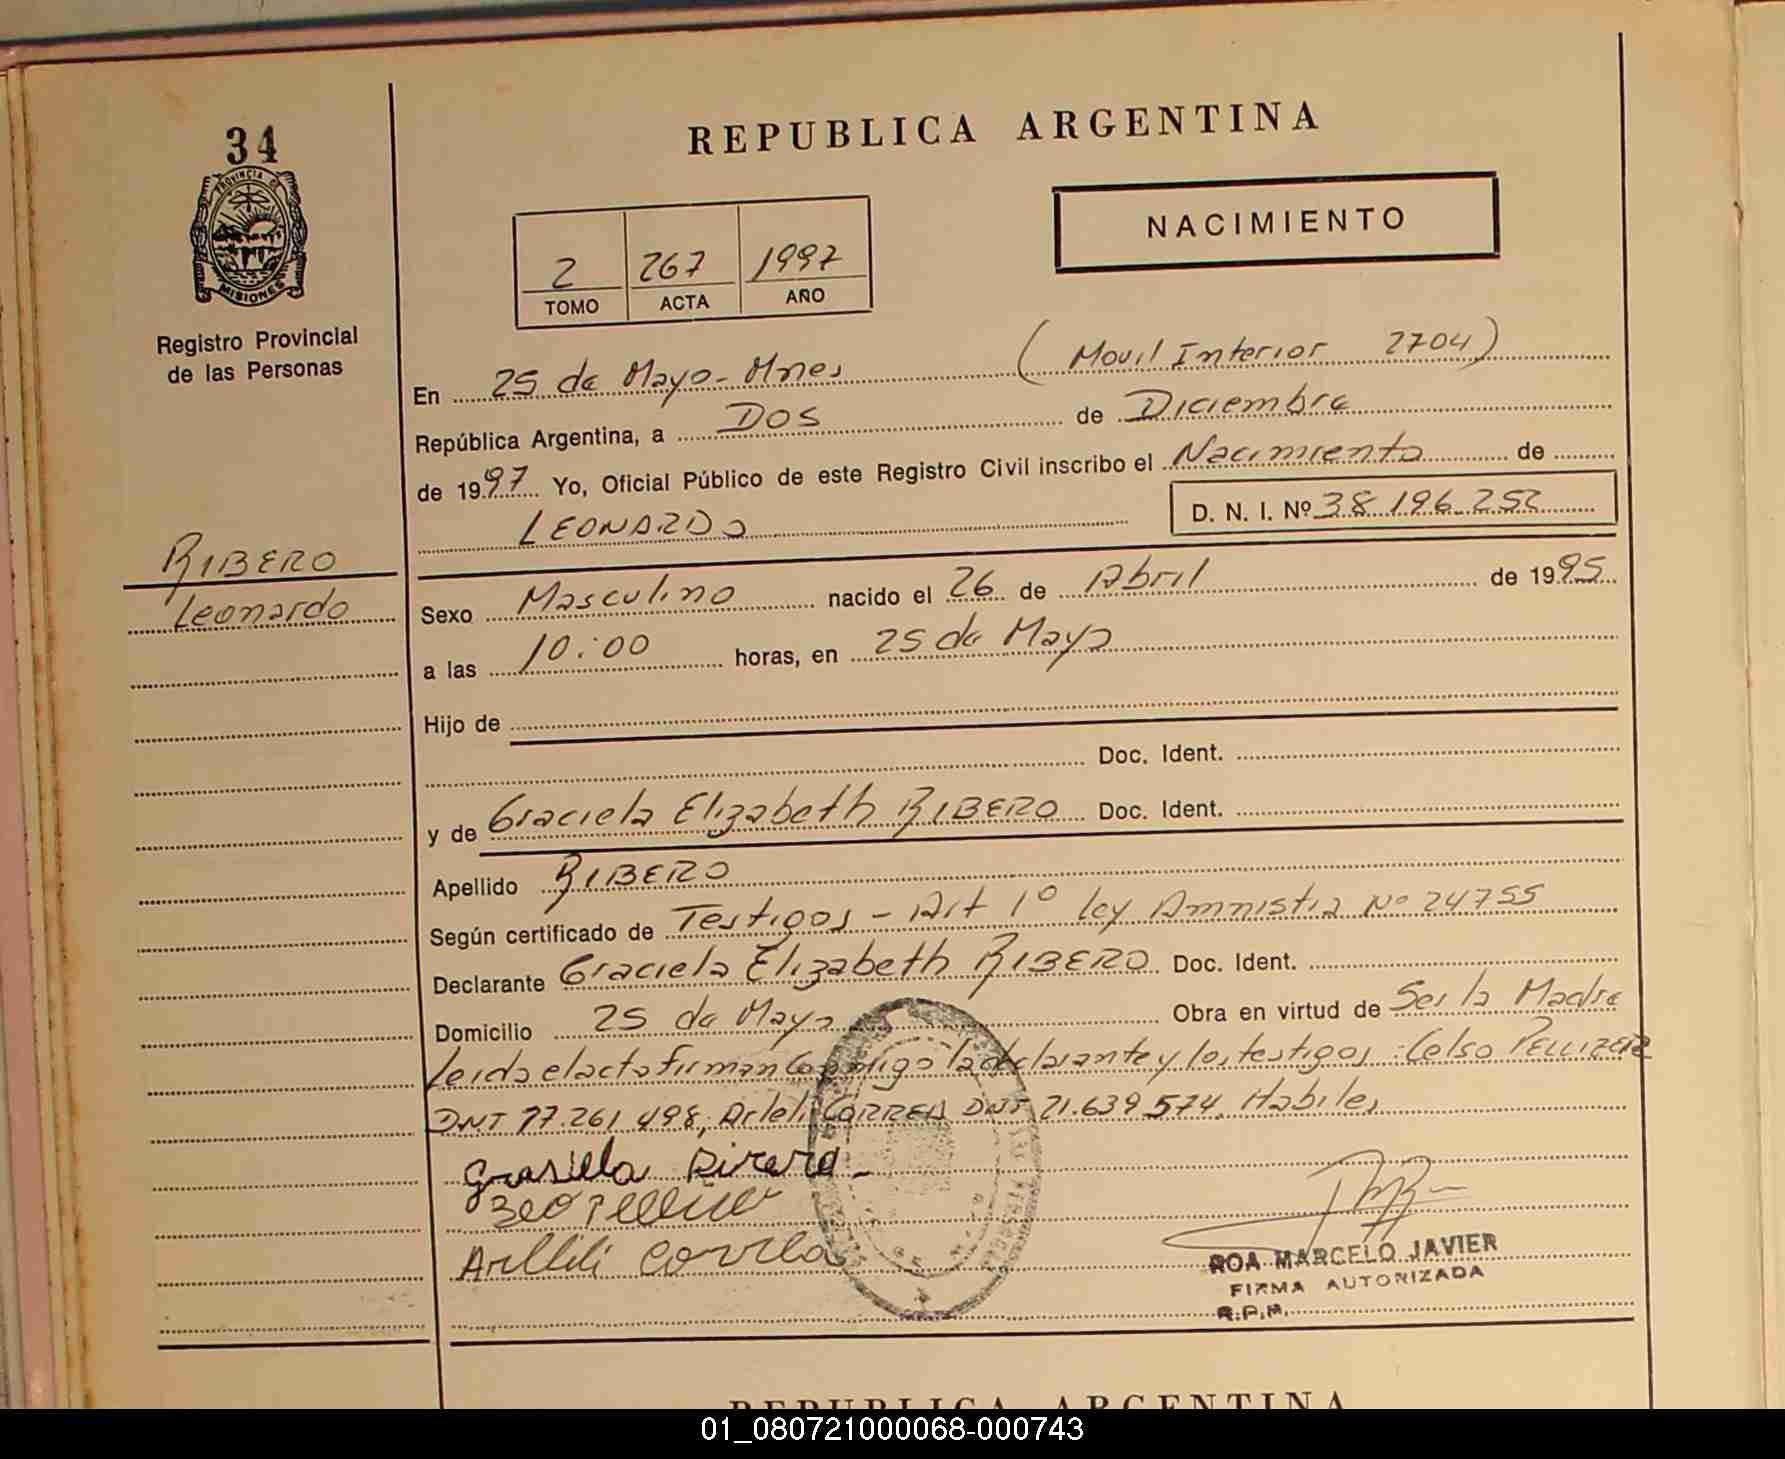 34
PROVINCIA DE
MISIONES
Registro Provincial
de las Personas
RIBERO
Leonardo
REPUBLICA ARGENTINA
NACIMIENTO
2 267 1997
TOMO ACTA AÑO
En 25 de Mayo - Mnes (Movil Interior 2704)
República Argentina, a DOS de Diciembre
de 1997 Yo, Oficial Público de este Registro Civil inscribo el Nacimiento de
LEONARDO D. N. I. Nº 38 196 252
Sexo Masculino nacido el 26 de Abril de 1995
a las 10:00 horas, en 25 de Mayo
Hijo de
Doc. Ident.
y de Graciela Elizabeth RIBERO Doc. Ident.
Apellido RIBERO
Según certificado de Testigos - Art 1º ley Amnistia Nº 24755
Declarante Graciela Elizabeth RIBERO Doc. Ident.
Domicilio 25 de Mayo Obra en virtud de Ser la Madre
Leida el acta firman conmigo la declarante y los testigos: Celso
DNI 261 498, Arleli CORREA DNI 21.639.574. Habiles
ROA MARCELO JAVIER
FIRMA AUTORIZADA
R.P.P.
REPUBLICA ARGENTINA
01_080721000068-000743